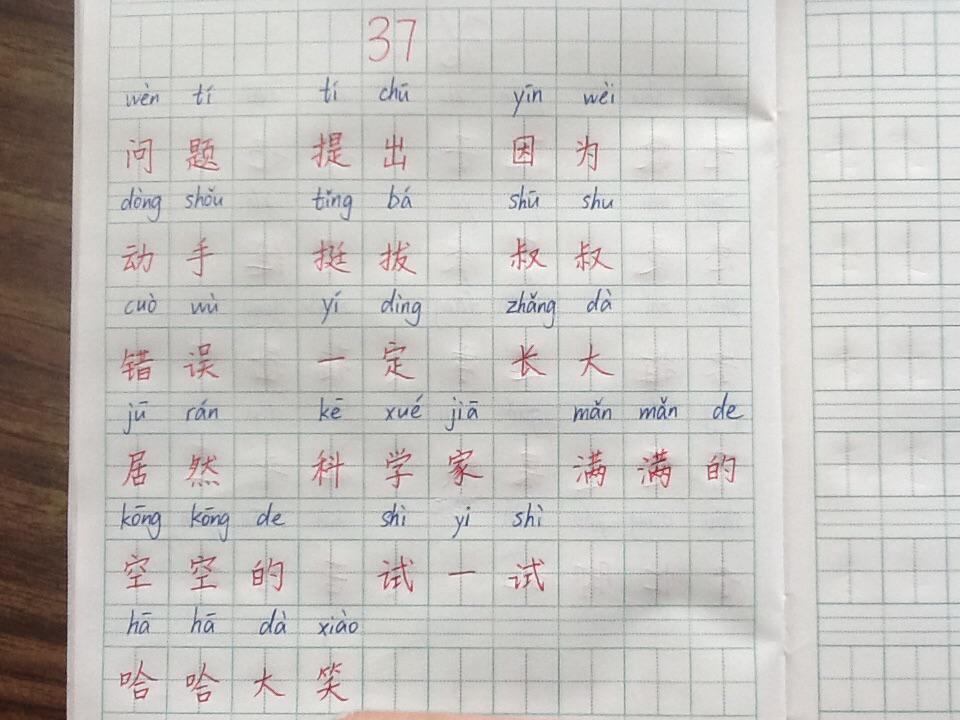 37
wèn tí tí chū yīn wèi
问题 提出 因为
dòng shǒu tǐng bá shū shu
动手 挺拔 叔叔
cuò wù yí dìng zhǎng dà
错误 一定 长大
jū rán kē xué jiā mǎn mǎn de
居然 科学家 满满的
kōng kōng de shì yi shì
空空的 试一试
hā hā dà xiào
哈哈大笑